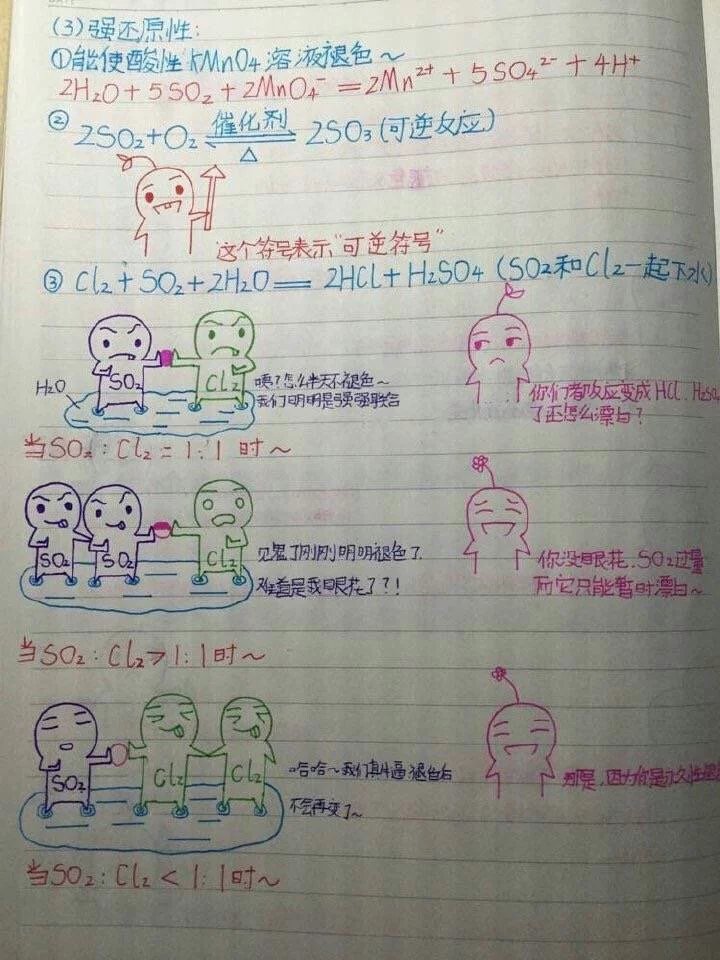 (3)强还原性:
①能使酸性KMnO4溶液褪色~
2H₂O+5SO₂+2MnO₄⁻=2Mn²⁺+5SO₄²⁻+4H⁺
② 2SO₂+O₂ ⇌ 2SO₃(可逆反应)
催化剂
△
这个符号表示"可逆符号"
③ Cl₂+SO₂+2H₂O=2HCl+H₂SO₄(SO₂和Cl₂一起下水)
H₂O
SO₂
Cl₂
咦?怎么半天不褪色~
我们明明是强强联合
你们都反应变成HCl、H₂SO₄
了还怎么漂白?
当SO₂:Cl₂=1:1时~
SO₂
SO₂
Cl₂
见鬼了刚刚明明褪色了
难道是我眼花了?!
你没眼花、SO₂过量
而它只能暂时漂白~
当SO₂:Cl₂>1:1时~
SO₂
Cl₂
Cl₂
哈哈~我们真牛逼褪色后
不会再变了~
那是,因为你是永久性
当SO₂:Cl₂<1:1时~